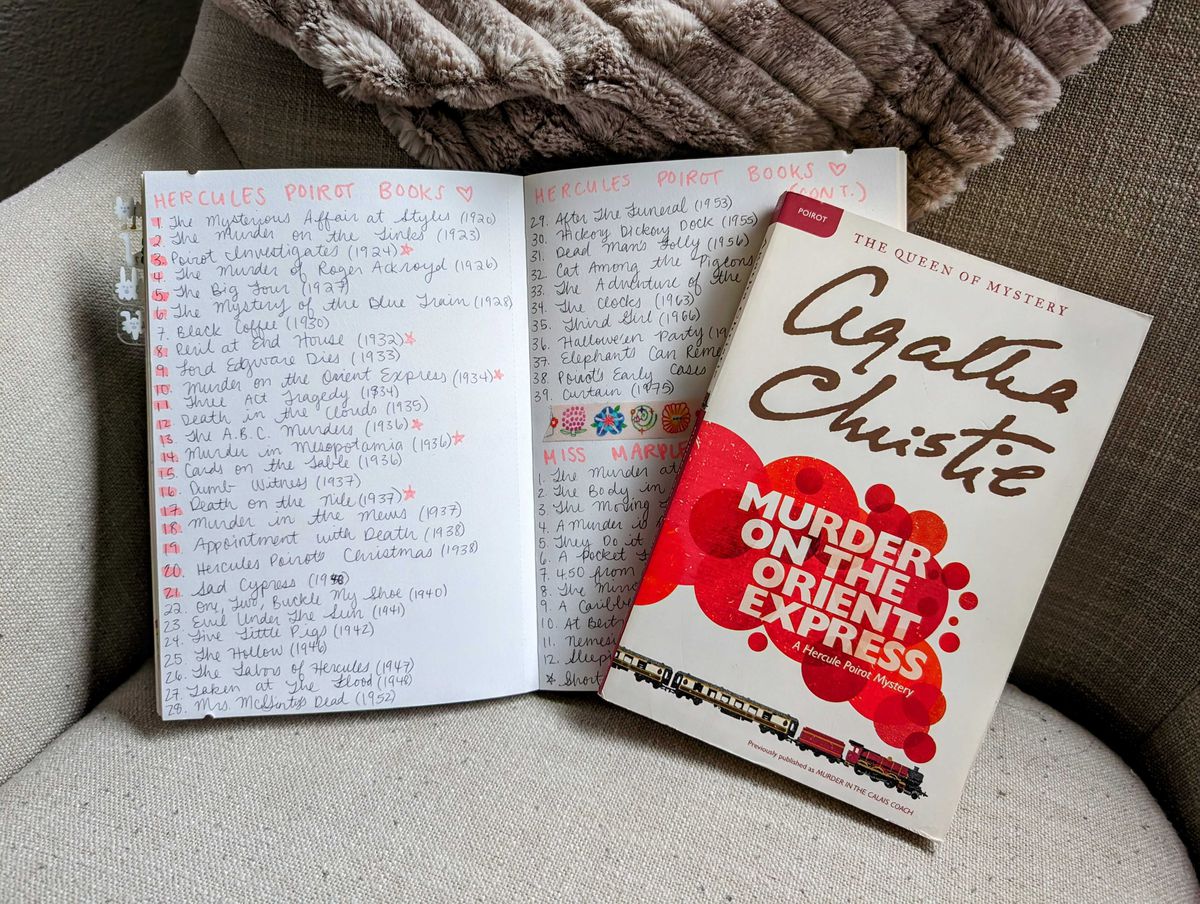 HERCULES POIROT BOOKS ♡
1. The Mysterious Affair at Styles (1920)
2. The Murder on the Links (1923)
3. Poirot Investigates (1924) ☆
4. The Murder of Roger Ackroyd (1926)
5. The Big Four (1927)
6. The Mystery of the Blue Train (1928)
7. Black Coffee (1930)
8. Peril at End House (1932) ☆
9. Lord Edgware Dies (1933)
10. Murder on the Orient Express (1934) ☆
11. Three Act Tragedy (1934)
12. Death in the Clouds (1935)
13. The A.B.C. Murders (1936) ☆
14. Murder in Mesopotamia (1936) ☆
15. Cards on the Table (1936)
16. Dumb Witness (1937)
17. Death on the Nile (1937) ☆
18. Murder in the Mews (1937)
19. Appointment with Death (1938)
20. Hercules Poirot's Christmas (1938)
21. Sad Cypress
22. One, Two, Buckle My Shoe (1940)
23. Evil Under The Sun (1941)
24. Five Little Pigs (1942)
25. The Hollow (1946)
26. The Labors of Hercules (1947)
27. Taken at The Flood (1948)
28. Mrs. McGinty's Dead (1952)
HERCULES POIROT BOOKS ♡
(CONT.)
29. After The Funeral (1953)
30. Hickory Dickory Dock (1955)
31. Dead Man's Folly (1956)
32. Cat Among the Pigeons
33. The Adventure of the
34. The Clocks (1963)
35. Third Girl (1966)
36. Hallowe'en Party (19
37. Elephants Can Reme
38. Poirot's Early Cases
39. Curtain (1975)
MISS MARPLE
1. The Murder at
2. The Body in
3. The Moving
4. A Murder is
5. They Do it
6. A Pocket
7. 4:50 from
8. The Mirr
9. A Caribbe
10. At Bert
11. Nemesi
12. Sleepi
☆ Short
POIROT
THE QUEEN OF MYSTERY
Agatha
Christie
MURDER
ON THE
ORIENT
EXPRESS
A Hercule Poirot Mystery
Previously published as MURDER IN THE CALAIS COACH